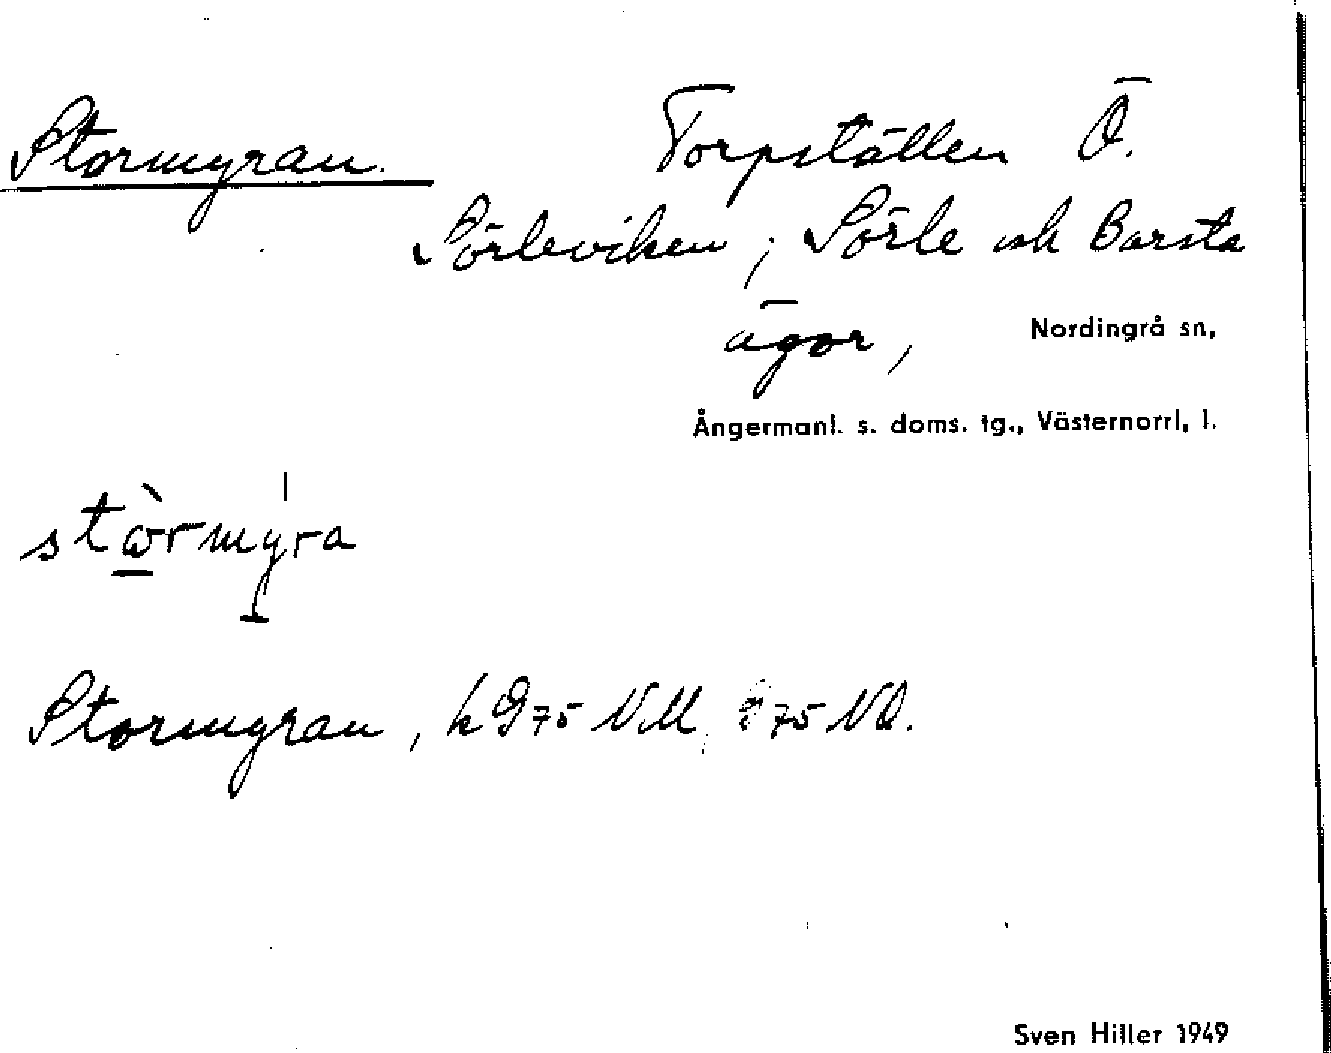 Stormyran. Torpställen Ö.
Sörleviken; Sörle och Barsta
ägor, Nordingrå sn,
Ångermanl. s. doms. tg., Västernorrl. l.
stòrmýra
Stormyran, k 975 NV. 75 NO.
Sven Hiller 1949